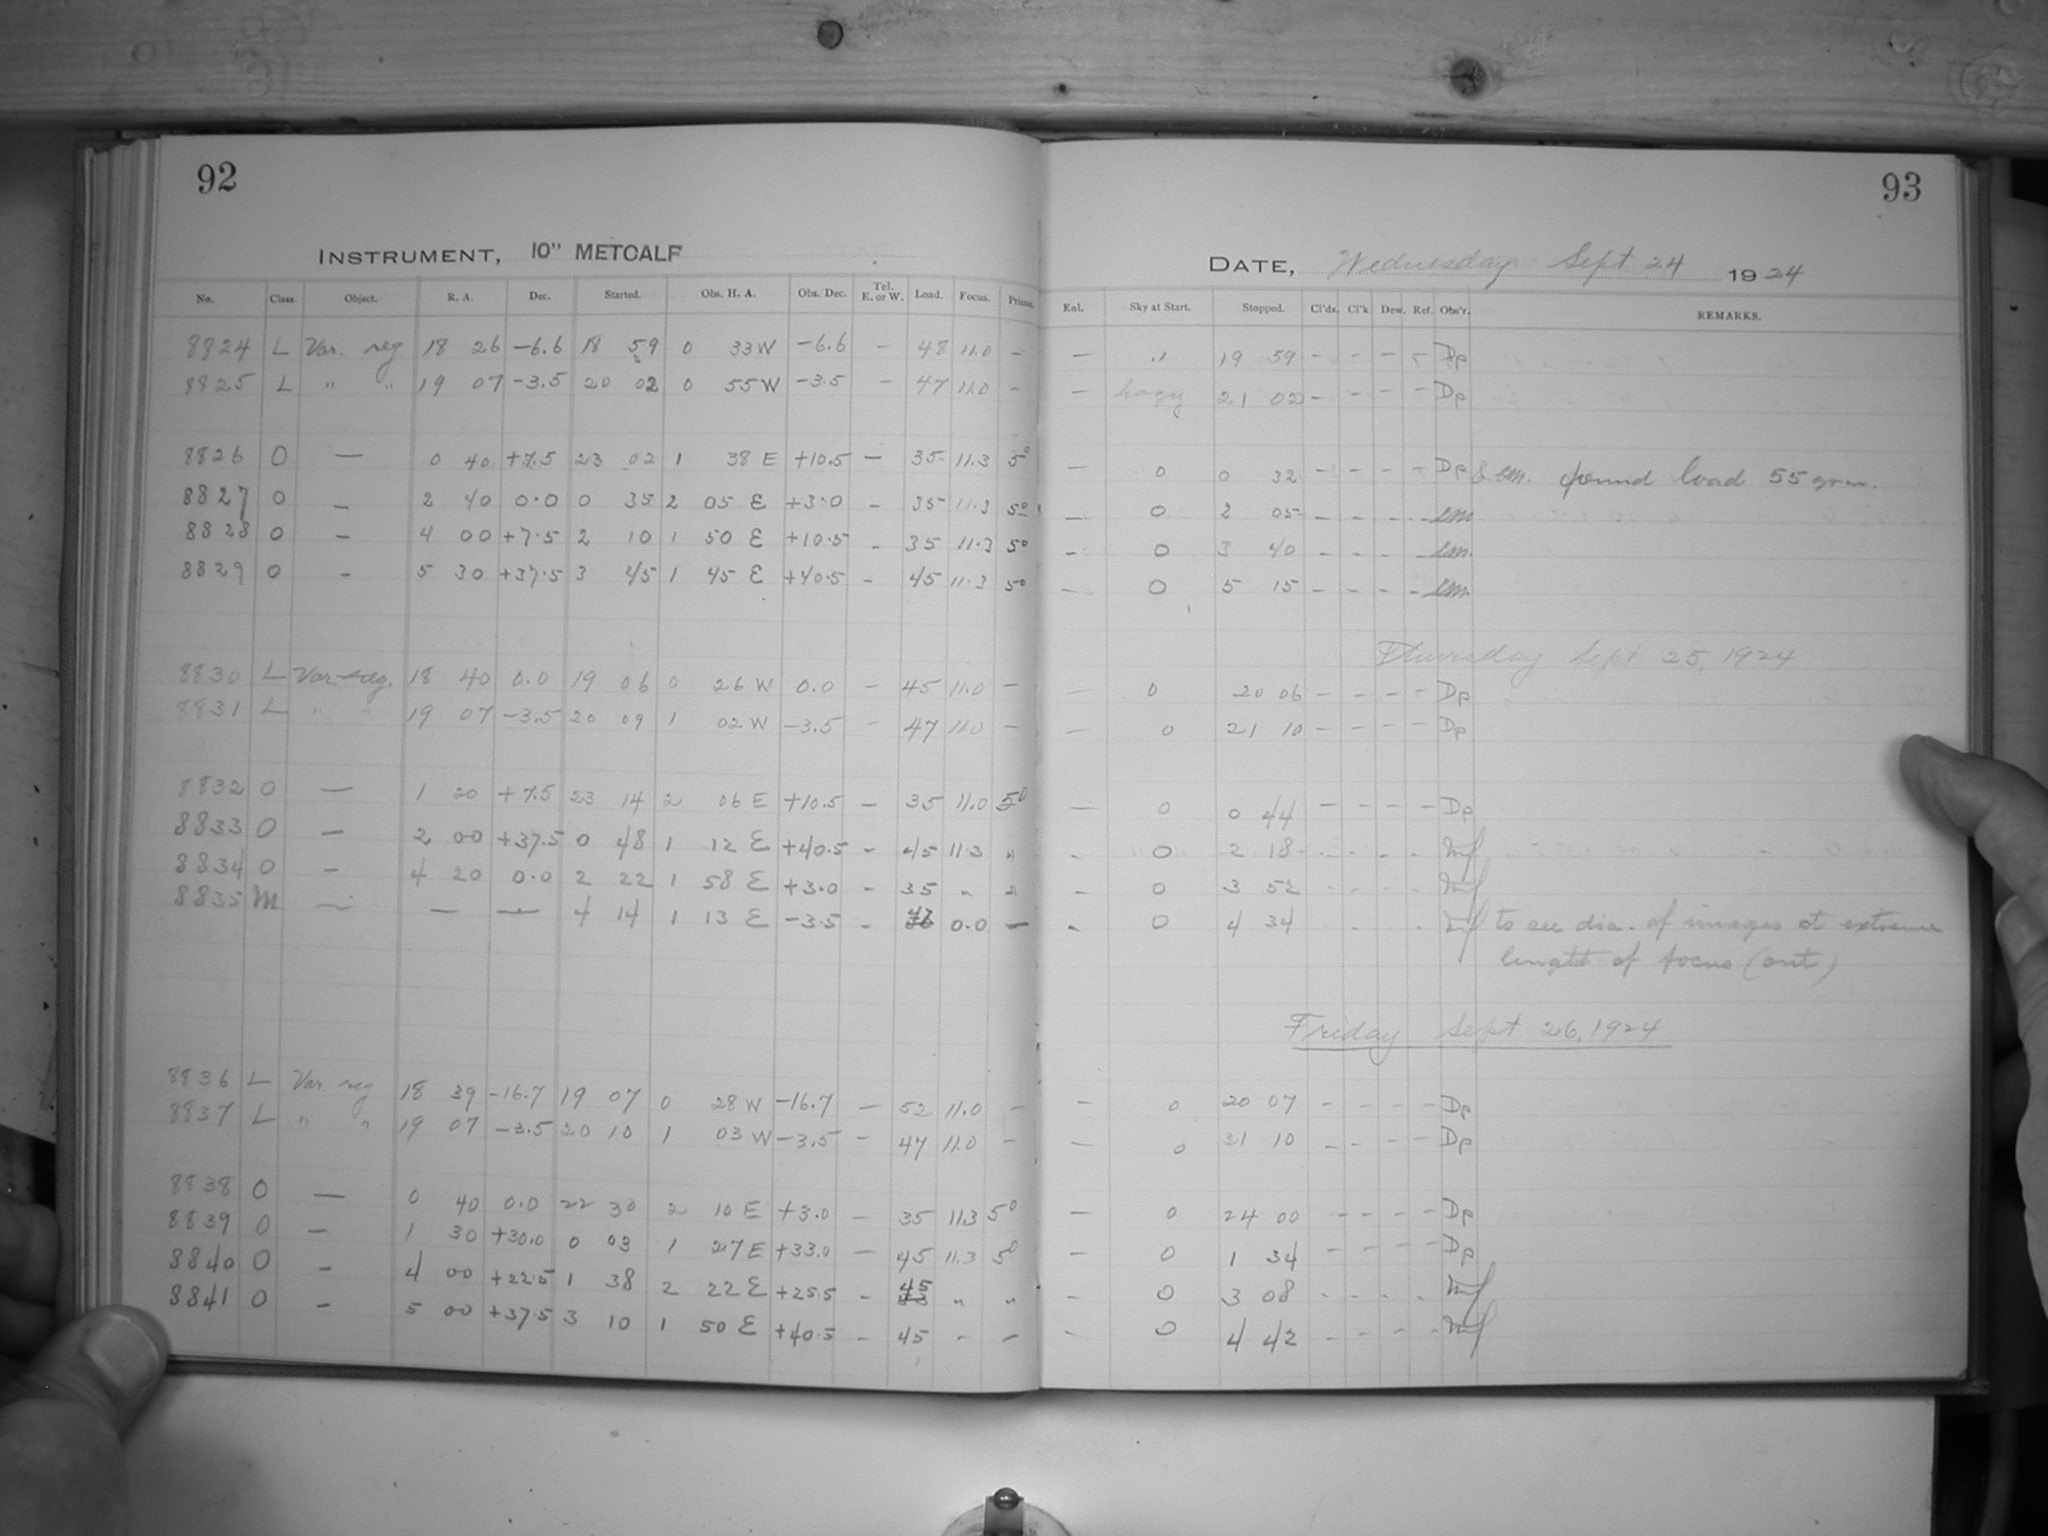 92
INSTRUMENT, 10" METCALF
No. Class. Object. R. A. Dec. Started. Obs. H. A. Obs. Dec. Tel. E. or W. Load. Focus. Prism.
8824 L Var. reg 18 26 -6.6 18 59 0 33 W -6.6 - 48 11.0 -
8825 L " " 19 07 -3.5 20 02 0 55 W -3.5 - 47 11.0 -
8826 O — 0 40 +7.5 23 02 1 38 E +10.5 - 35 11.3 5°
8827 O - 2 40 0.0 0 35 2 05 E +3.0 - 35 11.3 5°
8828 O - 4 00 +7.5 2 10 1 50 E +10.5 - 35 11.3 5°
8829 O - 5 30 +37.5 3 45 1 45 E +40.5 - 45 11.3 5°
8830 L Var reg. 18 40 0.0 19 06 0 26 W 0.0 - 45 11.0 -
8831 L " " 19 07 -3.5 20 09 1 02 W -3.5 - 47 11.0 -
8832 O — 1 20 +7.5 23 14 2 06 E +10.5 - 35 11.0 5°
8833 O - 2 00 +37.5 0 48 1 12 E +40.5 - 45 11.3 "
8834 O - 4 20 0.0 2 22 1 58 E +3.0 - 35 " "
8835 M — — — 4 14 1 13 E -3.5 - 47 0.0 —
8836 L Var. reg 18 39 -16.7 19 07 0 28 W -16.7 — 52 11.0 -
8837 L " " 19 07 -3.5 20 10 1 03 W -3.5 - 47 11.0 -
8838 O — 0 40 0.0 22 30 2 10 E +3.0 - 35 11.3 5°
8839 O - 1 30 +30.0 0 03 1 27 E +33.0 - 45 11.3 5°
8840 O - 4 00 +22.5 1 38 2 22 E +25.5 - 45 " "
8841 O - 5 00 +37.5 3 10 1 50 E +40.5 - 45 - -
93
DATE, Wednesday Sept 24 1924
Enl. Sky at Start. Stopped. Cl'ds. Cl'k. Dew. Ref. Obs'r. REMARKS.
— " 19 59 - - - - Dp
— hazy 21 02 - - - - Dp
— 0 0 32 - - - - Dp & SM. found load 55 grm.
— 0 2 05 - - - - SM
- 0 3 40 - - - - SM.
- 0 5 15 - - - - SM.
Thursday Sept 25, 1924
— 0 20 06 - - - - Dp
— 0 21 10 - - - - Dp
— 0 0 44 - - - - Dp
- 0 2 18 - - - - Mf
- 0 3 52 - - - - Mf
- 0 4 34 - - - Mf to see dia. of images at extreme
lenght of focus (out)
Friday Sept 26, 1924
— 0 20 07 - - - - Dp
— 0 21 10 - - - - Dp
— 0 24 00 - - - - Dp
— 0 1 34 - - - - Dp
- 0 3 08 - - - - Mf
- 0 4 42 - - - - Mf